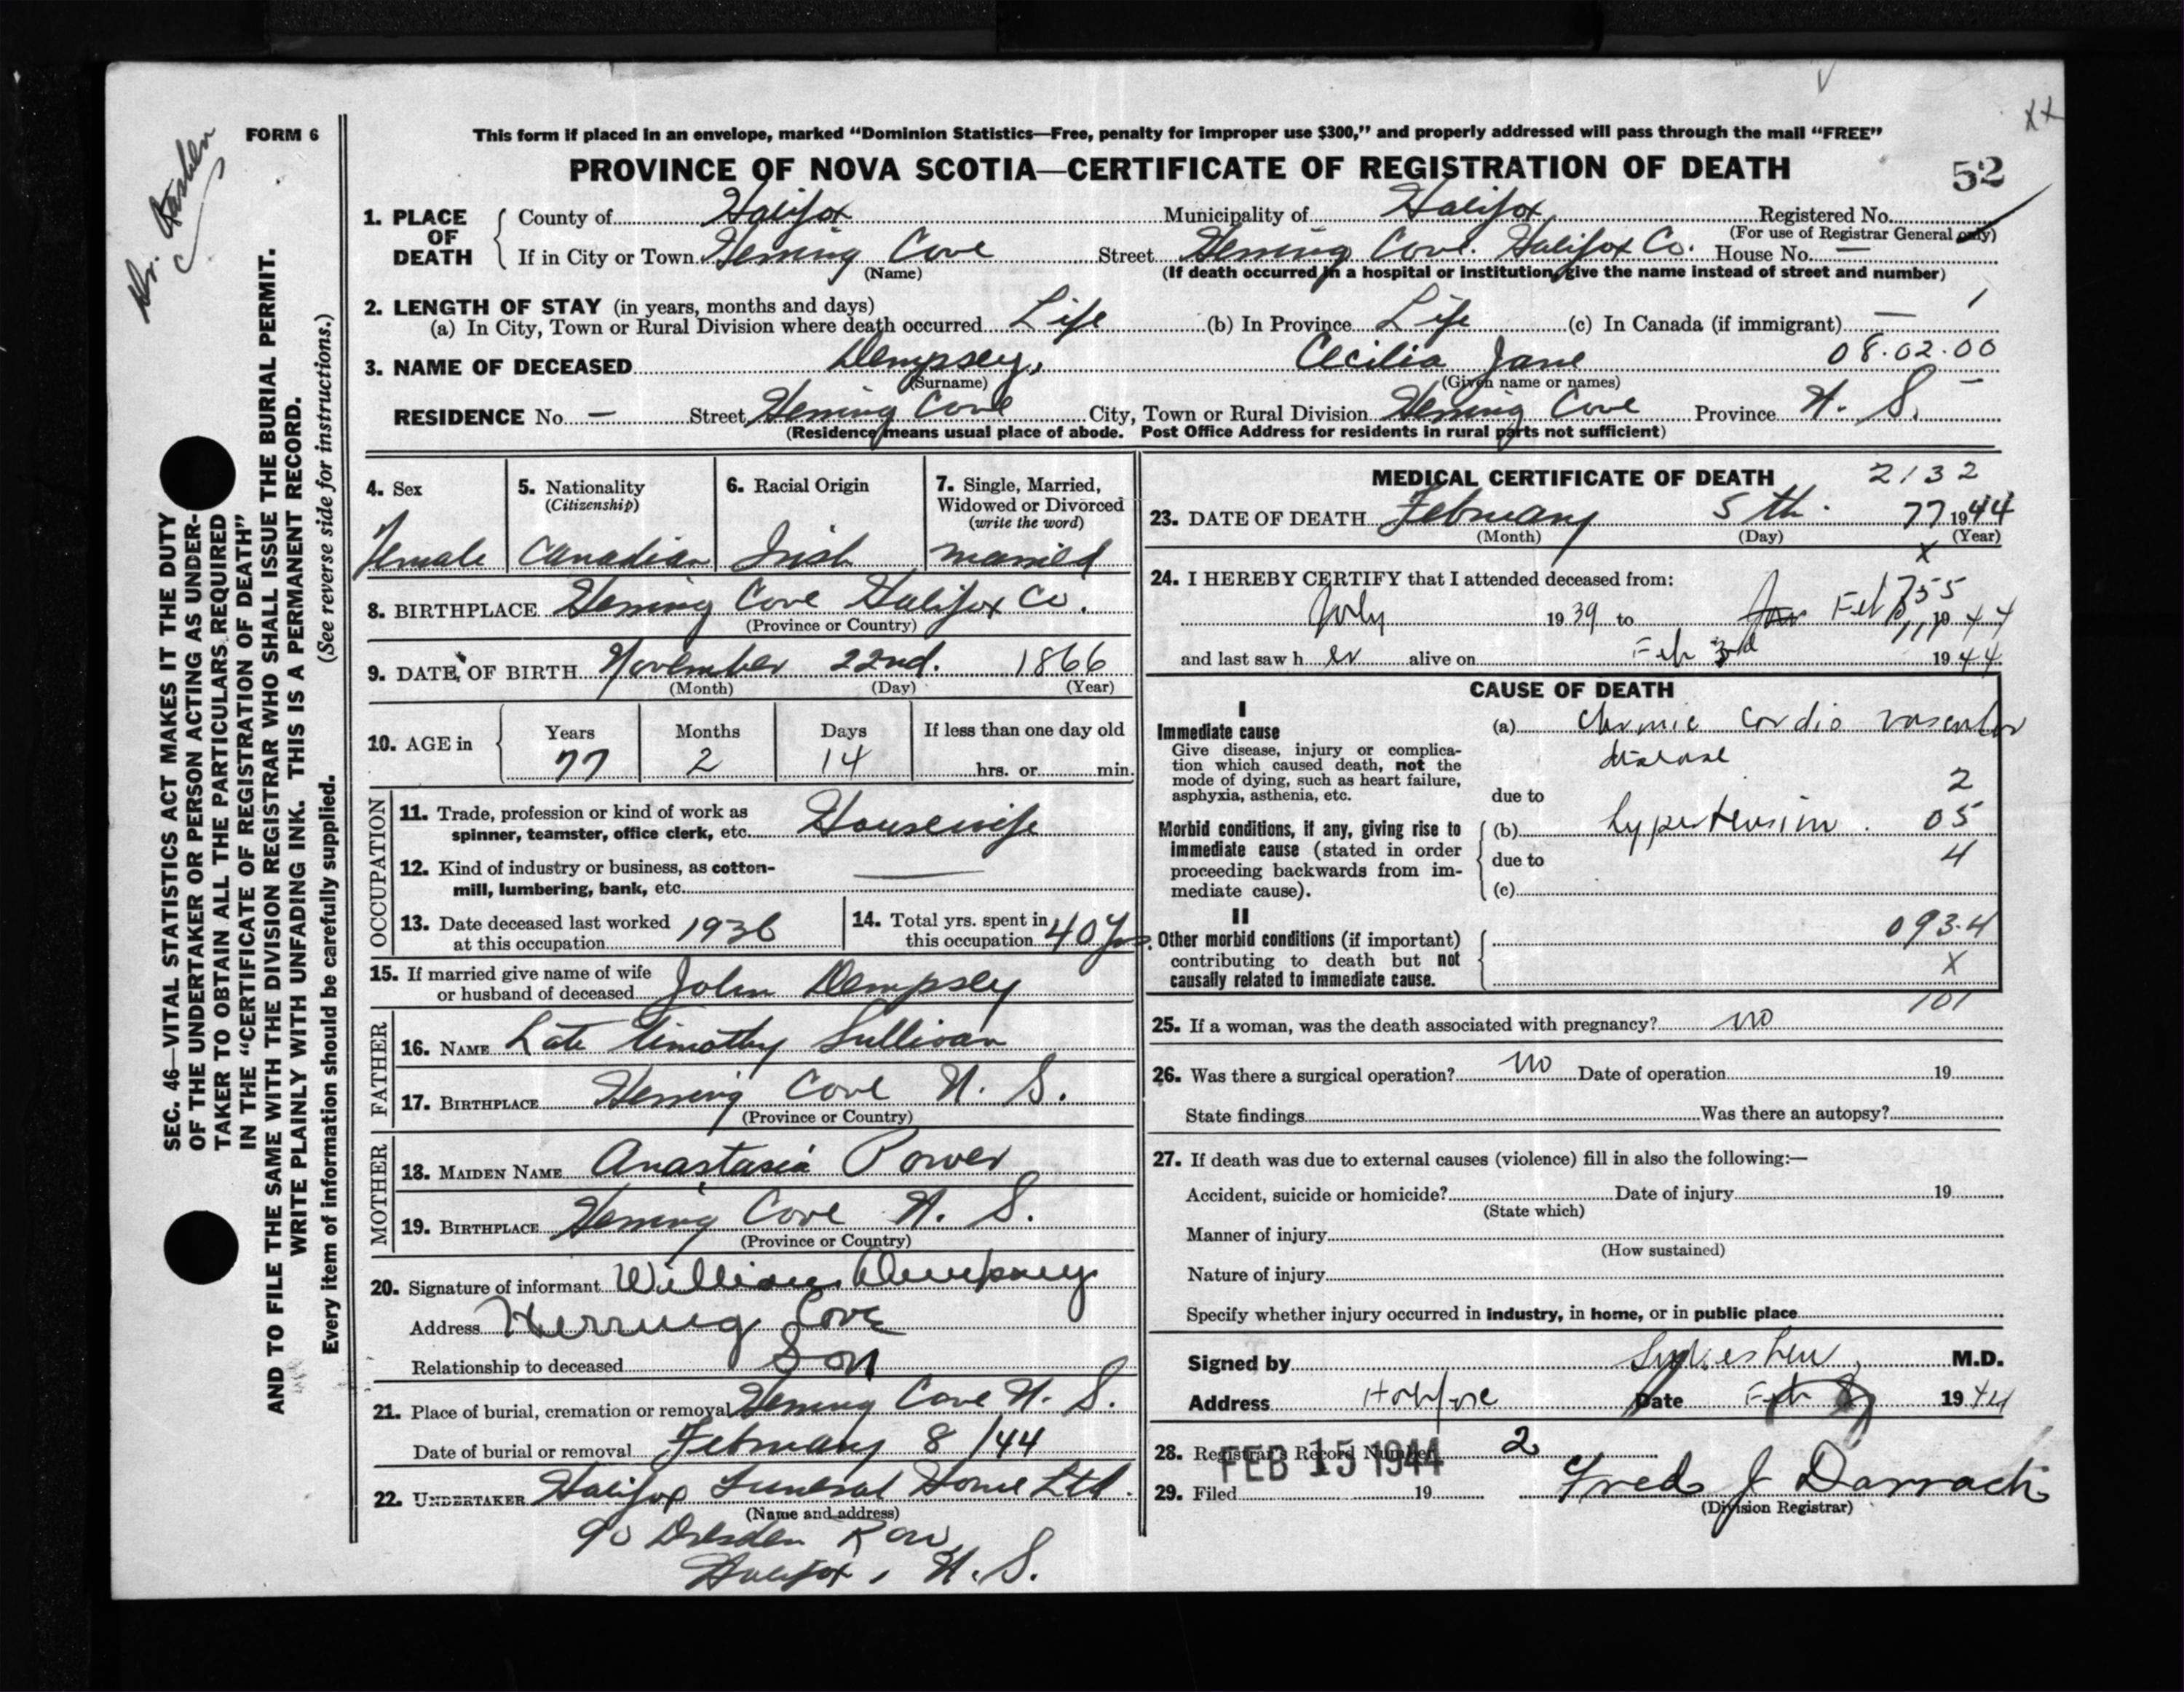 xx
FORM 6
This form if placed in an envelope, marked “Dominion Statistics—Free, penalty for improper use $300,” and properly addressed will pass through the mail “FREE”
PROVINCE OF NOVA SCOTIA—CERTIFICATE OF REGISTRATION OF DEATH
52
Dr.
SEC. 46—VITAL STATISTICS ACT MAKES IT THE DUTY
OF THE UNDERTAKER OR PERSON ACTING AS UNDER-
TAKER TO OBTAIN ALL THE PARTICULARS REQUIRED
IN THE “CERTIFICATE OF REGISTRATION OF DEATH”
AND TO FILE THE SAME WITH THE DIVISION REGISTRAR WHO SHALL ISSUE THE BURIAL PERMIT.
WRITE PLAINLY WITH UNFADING INK. THIS IS A PERMANENT RECORD.
Every item of information should be carefully supplied. (See reverse side for instructions.)
1. PLACE OF DEATH County of Halifax Municipality of Halifax Registered No.
(For use of Registrar General only)
If in City or Town Herring Cove Street Herring Cove. Halifax Co. House No. —
(Name) (If death occurred in a hospital or institution, give the name instead of street and number)
2. LENGTH OF STAY (in years, months and days) 1
(a) In City, Town or Rural Division where death occurred Life (b) In Province Life (c) In Canada (if immigrant) —
3. NAME OF DECEASED Dempsey, Cecilia Jane 08.02.00
(Surname) (Given name or names)
RESIDENCE No. — Street Herring Cove City, Town or Rural Division Herring Cove Province N. S. —
(Residence means usual place of abode. Post Office Address for residents in rural parts not sufficient)
4. Sex 5. Nationality (Citizenship) 6. Racial Origin 7. Single, Married, Widowed or Divorced (write the word)
Female Canadian Irish married
8. BIRTHPLACE Herring Cove Halifax Co.
(Province or Country)
9. DATE OF BIRTH November 22nd. 1866
(Month) (Day) (Year)
10. AGE in Years Months Days If less than one day old
77 2 14 hrs. or min.
OCCUPATION
11. Trade, profession or kind of work as
spinner, teamster, office clerk, etc. Housewife
12. Kind of industry or business, as cotton-
mill, lumbering, bank, etc. —
13. Date deceased last worked
at this occupation 1936
14. Total yrs. spent in
this occupation 40 yrs.
15. If married give name of wife
or husband of deceased John Dempsey
FATHER
16. NAME Late Timothy Sullivan
17. BIRTHPLACE Herring Cove N. S.
(Province or Country)
MOTHER
18. MAIDEN NAME Anastasia Power
19. BIRTHPLACE Herring Cove N. S.
(Province or Country)
20. Signature of informant William Dempsey
Address Herring Cove
Relationship to deceased Son
21. Place of burial, cremation or removal Herring Cove N. S.
Date of burial or removal February 8 /44
22. UNDERTAKER Halifax Funeral Home Ltd.
(Name and address)
90 Dresden Row,
Halifax, N.S.
MEDICAL CERTIFICATE OF DEATH 2132
23. DATE OF DEATH February 5th. 77 1944
(Month) (Day) (Year)
x
24. I HEREBY CERTIFY that I attended deceased from:
755
July 1939 to Jan Feb 1944
and last saw her alive on Feb 3rd 1944
CAUSE OF DEATH
I
Immediate cause
Give disease, injury or complica-
tion which caused death, not the
mode of dying, such as heart failure,
asphyxia, asthenia, etc.
(a) Chronic cordio vascular
disease
2
due to
Morbid conditions, if any, giving rise to
immediate cause (stated in order
proceeding backwards from im-
mediate cause).
(b) hypertension. 05
due to 4
(c)
II
Other morbid conditions (if important)
contributing to death but not
causally related to immediate cause.
093.4
x
101
25. If a woman, was the death associated with pregnancy? no
26. Was there a surgical operation? no Date of operation 19
State findings Was there an autopsy?
27. If death was due to external causes (violence) fill in also the following:—
Accident, suicide or homicide? Date of injury 19
(State which)
Manner of injury
(How sustained)
Nature of injury
Specify whether injury occurred in industry, in home, or in public place
Signed by M.D.
Address Halifax Date Feb 8 1944
28. Registrar's Record Number 2
FEB 15 1944
29. Filed 19 Fred J Darrach
(Division Registrar)